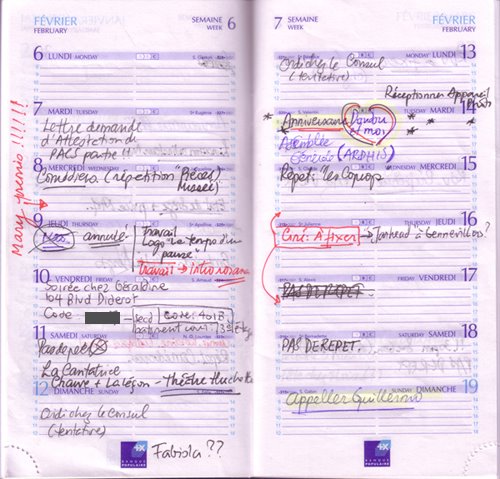 FÉVRIER
FEBRUARY
SEMAINE
WEEK
6
6 LUNDI MONDAY
7
MARDI TUESDAY
Lettre demande
d'Attestation du
PACS partie !!
8 MERCREDI WEDNESDAY
(répétition "Pièces
Russes)
Mary promio !!!!!!
9
JEUDI THURSDAY
annulé
Travail
Logo "Le temps d'un
pause"
Travail → intro roxane
10
VENDREDI FRIDAY
Soirée chez Géraldine
104 Blvd Diderot
Code
Code: 401B
3e Etg
11
SAMEDI SATURDAY
Pas de répet
La Cantatrice
Chauve + La Leçon - Théâtre Huchette
12
DIMANCHE SUNDAY
Ordi chez le Consul
(tentative)
Fabiola ??
BANQUE
POPULAIRE
7
SEMAINE
WEEK
FÉVRIER
FEBRUARY
13
LUNDI MONDAY
Ordi chez le Consul
(tentative)
Réceptionner Appareil
Photo
14
MARDI TUESDAY
* Anniversaire Doudou *
et moi
Assemblée
Générale (ARDHIS)
15
MERCREDI WEDNESDAY
Répet: "les
16
JEUDI THURSDAY
Ciné: A fixer → "Jarhead" à Gennevilliers?
17
VENDREDI FRIDAY
PAS DE REPET.
18
SAMEDI SATURDAY
PAS DE REPET.
19
DIMANCHE SUNDAY
Appeller Guillermo
BANQUE
POPULAIRE